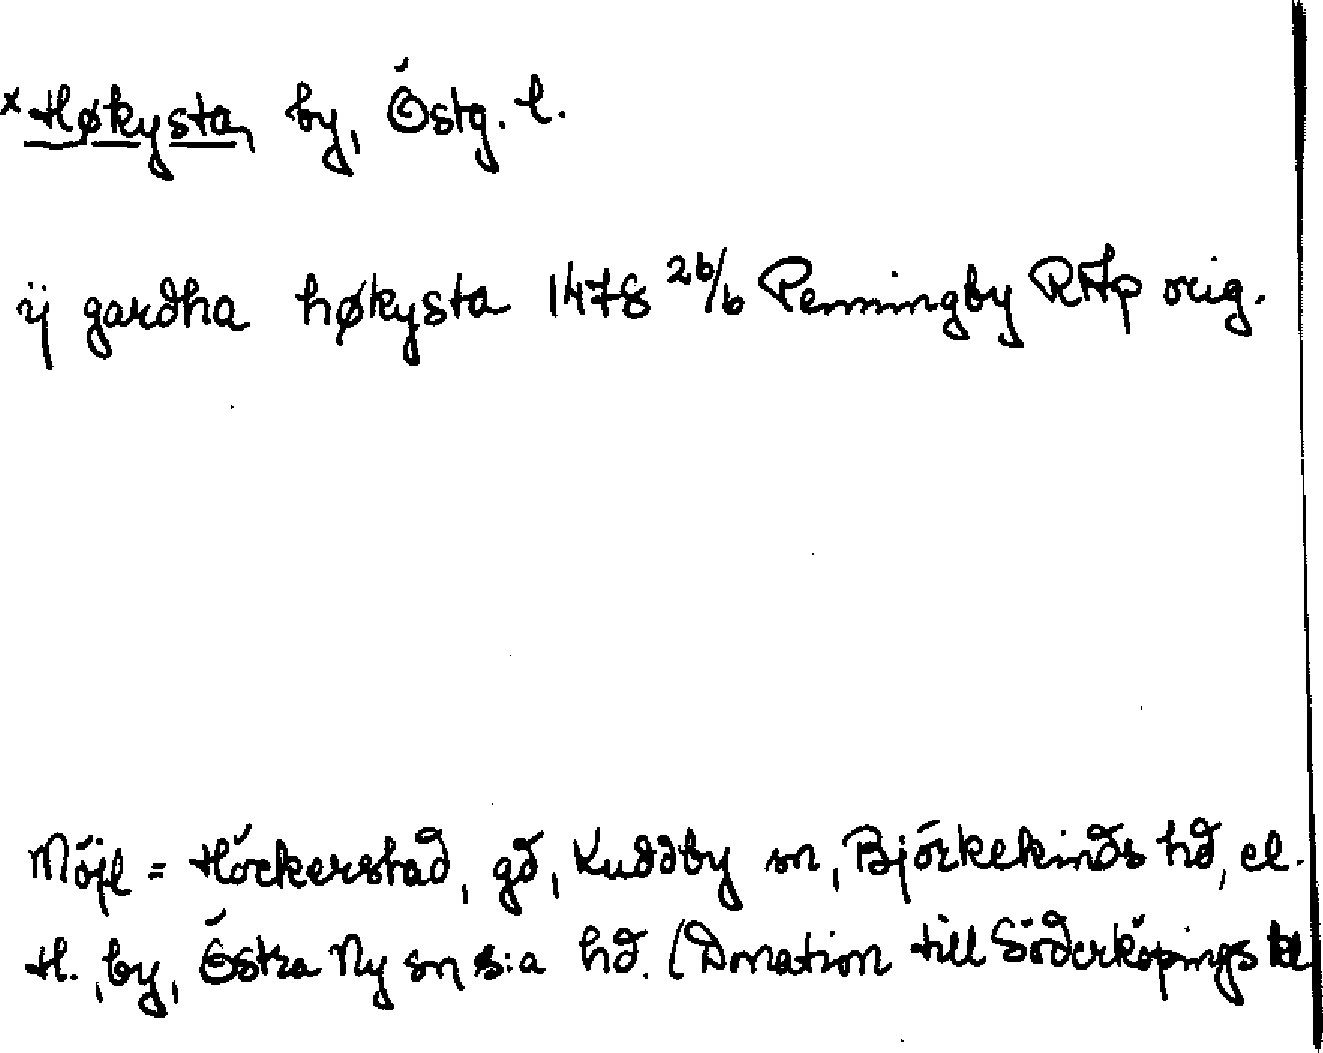 × Høkysta, by, Östg. l.
ij gardha høkysta 1478 26/6 Penningby RAp orig.
Möjl = Höckerstad, gd, Kuddby sn, Björkekinds hd, el.
H., by, Östra Ny sn s:a hd. (Donation till Söderköpings kl